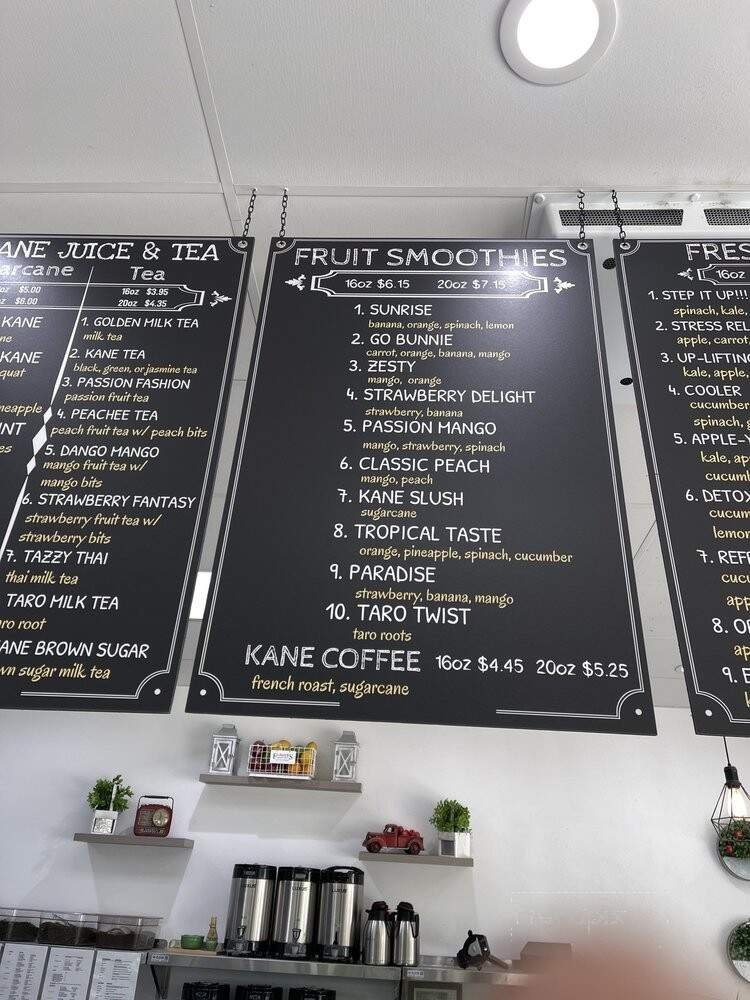 ANE JUICE & TEA
arcane Tea
oz $5.00
oz $6.00
16oz $3.95
20oz $4.35
KANE
ne
KANE
quat
neapple
INT
es
1. GOLDEN MILK TEA
milk tea
2. KANE TEA
black, green, or jasmine tea
3. PASSION FASHION
passion fruit tea
4. PEACHEE TEA
peach fruit tea w/ peach bits
5. DANGO MANGO
mango fruit tea w/
mango bits
6. STRAWBERRY FANTASY
strawberry fruit tea w/
strawberry bits
7. TAZZY THAI
thai milk tea
TARO MILK TEA
aro root
KANE BROWN SUGAR
wn sugar milk tea
FRUIT SMOOTHIES
16oz $6.15 20oz $7.15
1. SUNRISE
banana, orange, spinach, lemon
2. GO BUNNIE
carrot, orange, banana, mango
3. ZESTY
mango, orange
4. STRAWBERRY DELIGHT
strawberry, banana
5. PASSION MANGO
mango, strawberry, spinach
6. CLASSIC PEACH
mango, peach
7. KANE SLUSH
sugarcane
8. TROPICAL TASTE
orange, pineapple, spinach, cucumber
9. PARADISE
strawberry, banana, mango
10. TARO TWIST
taro roots
KANE COFFEE 16oz $4.45 20oz $5.25
french roast, sugarcane
FRES
16oz
1. STEP IT UP!!!
spinach, kale,
2. STRESS REL
apple, carrot,
3. UP-LIFTIN
kale, apple,
4. COOLER
cucumber
spinach, g
5. APPLE-
kale, ap
cucum
6. DETOX
cucum
lemon
7. REF
cuc
app
8. O
ap
9. E
LUXUS
LUXUS
LUXUS